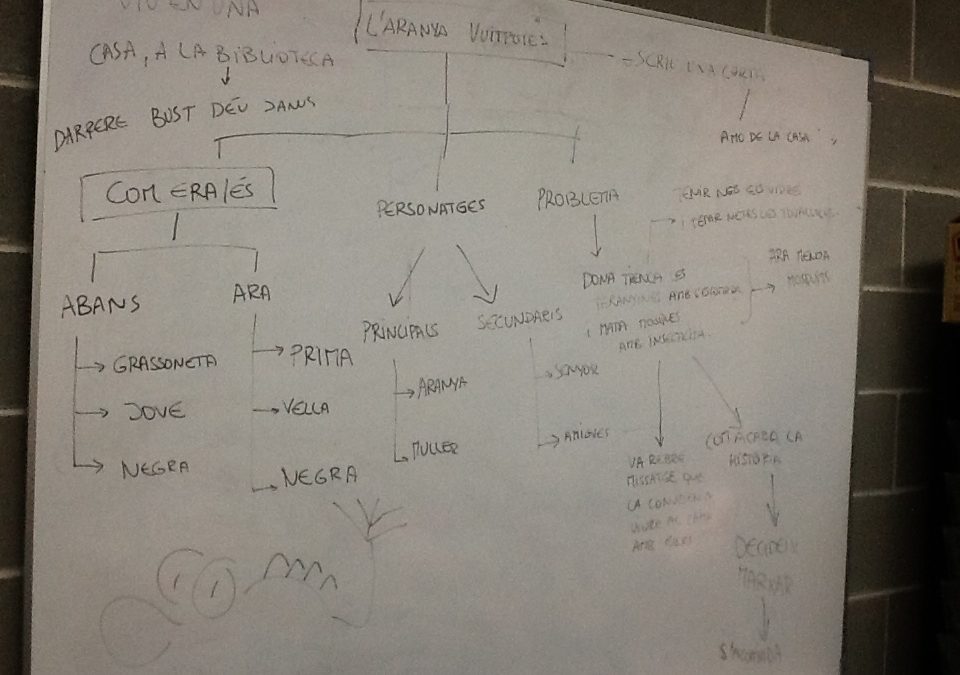 VIU EN UNA
CASA, A LA BIBLIOTECA
DARRERE BUST DÉU JANUS
L'ARANYA VUITPOTES
AMO DE LA CASA
COM ERA/ÉS
PERSONATGES
PROBLEMA
ABANS
ARA
GRASSONETA
JOVE
NEGRA
PRIMA
VELLA
NEGRA
PRINCIPALS
SECUNDARIS
ARANYA
MULLER
SENYOR
AMIGUES
TENIR NETS ELS VIDRES
I TENIR NETES LES TOVALLOLES.
DONA TRENCA ES
TERANYINES AMB L'ESCOMBRA
I MATA MOSQUES
AMB INSECTICIDA.
ARA MENJA
MOSQUITS
VA REBRE
MISSATGE QUE
LA CONVIDEN A
VIURE AL CAMP
AMB ELLES
COM ACABA LA
HISTÒRIA
DECIDEIX
MARXAR
S'ACOMIADA